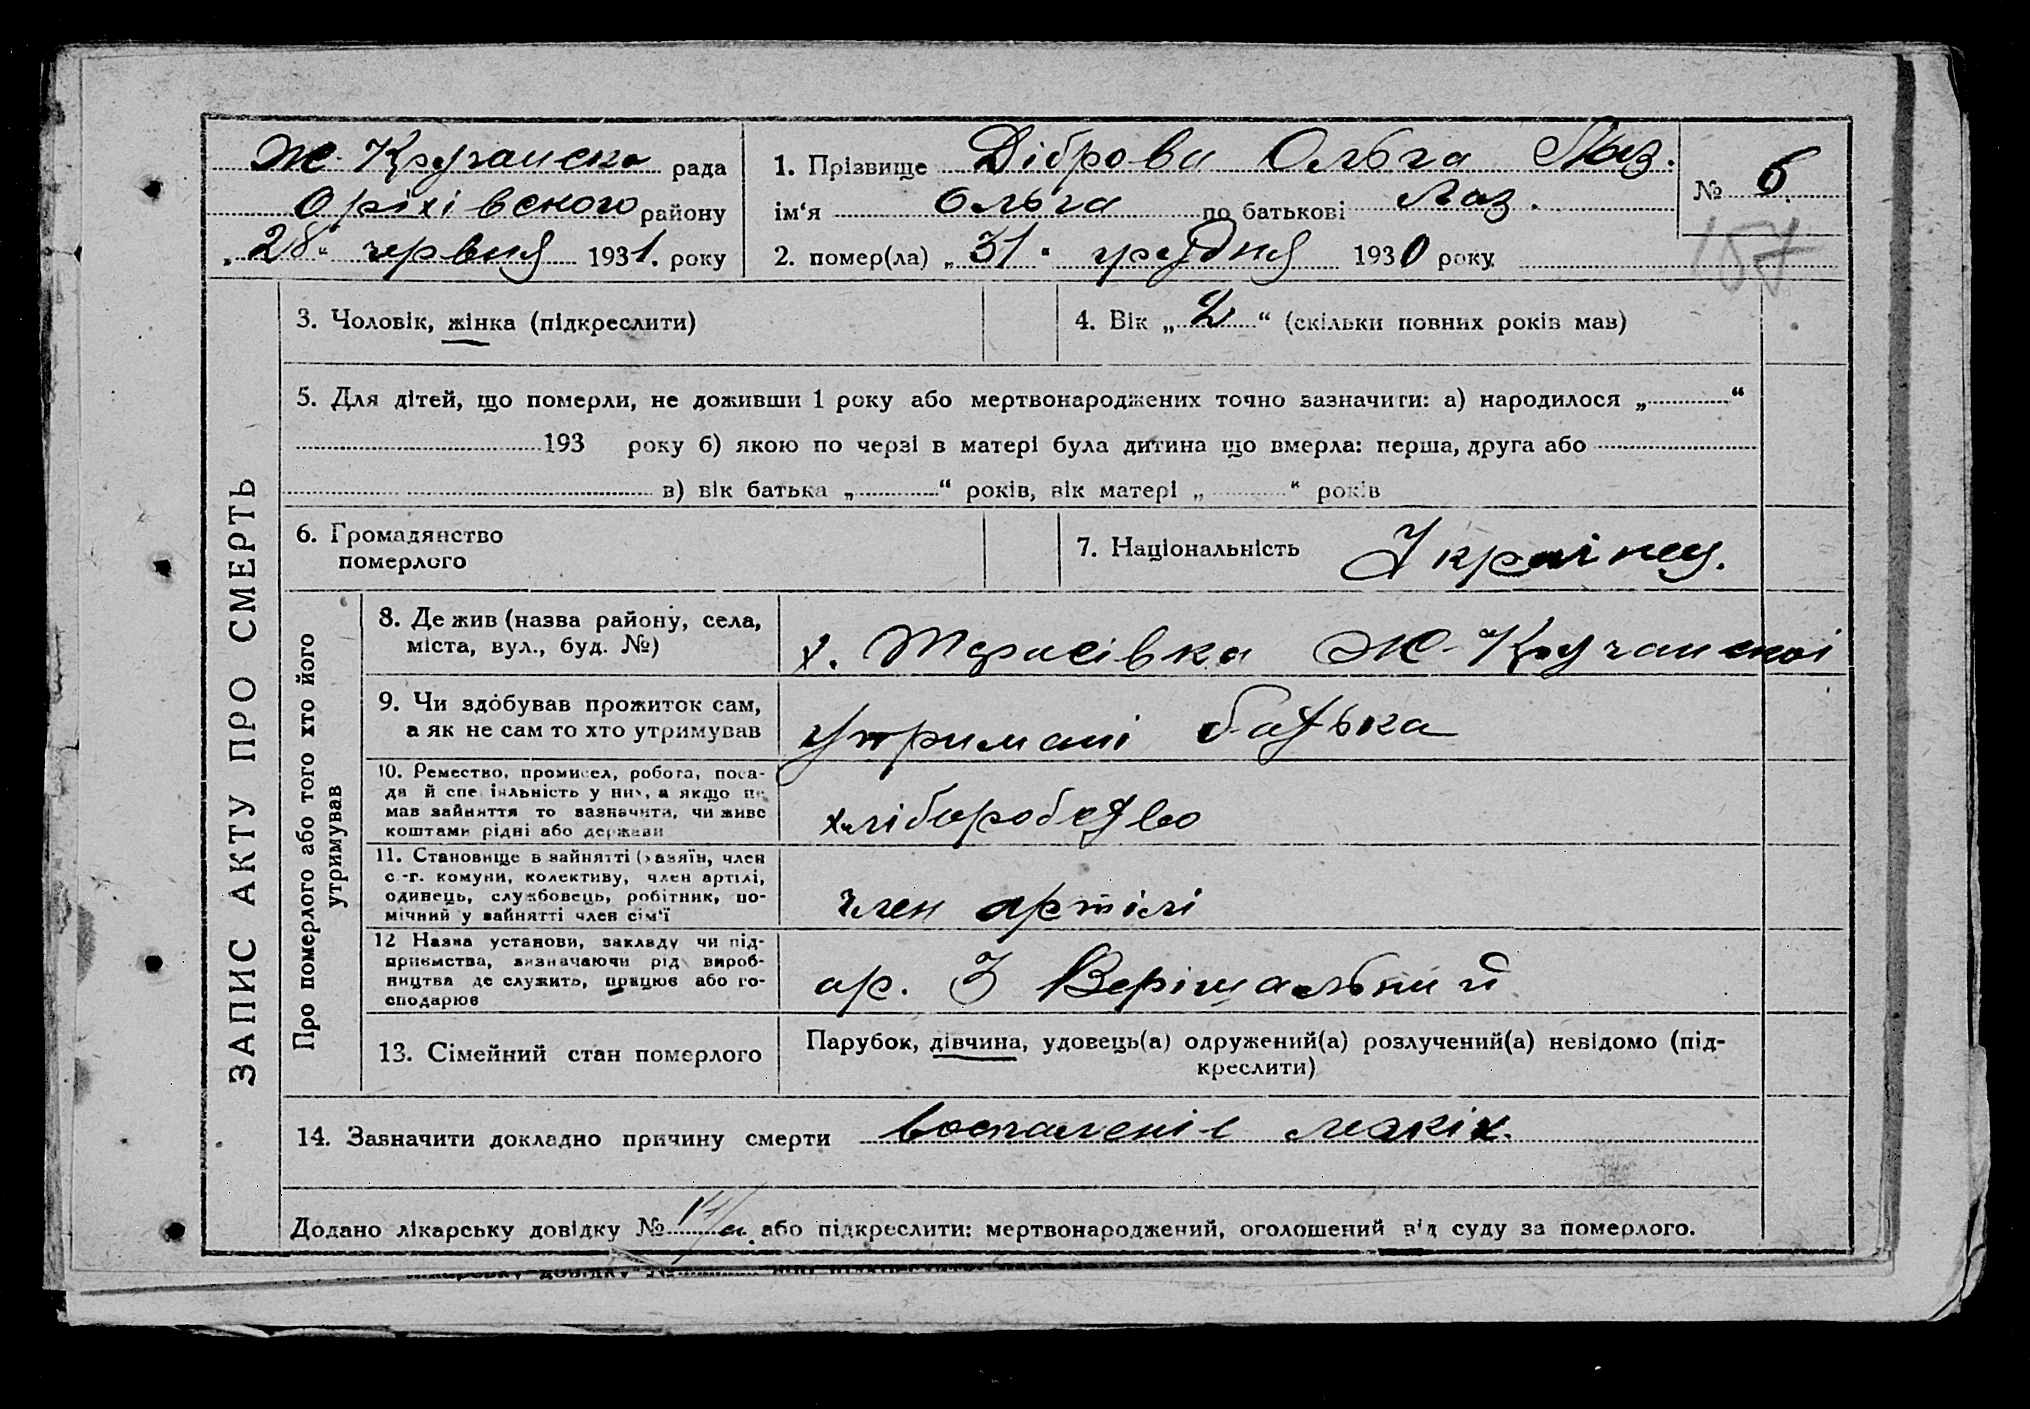 ЗАПИС АКТУ ПРО СМЕРТЬ
Ж-Кручанска рада
Оріхівського району
„28“ червня 1931. року
1. Прізвище Діброва Ольга Лаз.
ім‘я Ольга по батькові Лаз.
2. помер(ла) „31“ грудня 1930 року
№ 6
157
3. Чоловік, жінка (підкреслити)
4. Вік „2“ (скільки повних років мав)
5. Для дітей, що померли, не доживши 1 року або мертвонароджених точно зазначити: а) народилося „ “
193 року б) якою по черзі в матері була дитина що вмерла: перша, друга або
в) вік батька „ “ років, вік матері „ “ років
6. Громадянство
померлого
7. Національність Українец.
Про померлого або того хто його
утримував
8. Де жив (назва району, села,
міста, вул., буд. №)
х. Тарасівка Ж-Кручанскої
9. Чи здобував прожиток сам,
а як не сам то хто утримував
утримані батька
10. Ремество, промисел, робота, поса-
да й спеціяльність у них, а якщо не
мав зайняття то зазначити, чи живе
коштами рідні або держави
хліборобство
11. Становище в зайнятті (хазяїн, член
с.-г. комуни, колективу, член артілі,
одинець, службовець, робітник, по-
мічний у зайнятті член сім‘ї
член артілі
12 Назва установи, закладу чи під-
приємства, зазначаючи рід вироб-
ництва де служить, працює або го-
сподарює
ар. 3 Верішальний
13. Сімейний стан померлого
Парубок, дівчина, удовець(а) одружений(а) розлучений(а) невідомо (під-
креслити)
14. Зазначити докладно причину смерти воспаленіє легкіх.
Додано лікарську довідку № або підкреслити: мертвонароджений, оголошений від суду за померлого.